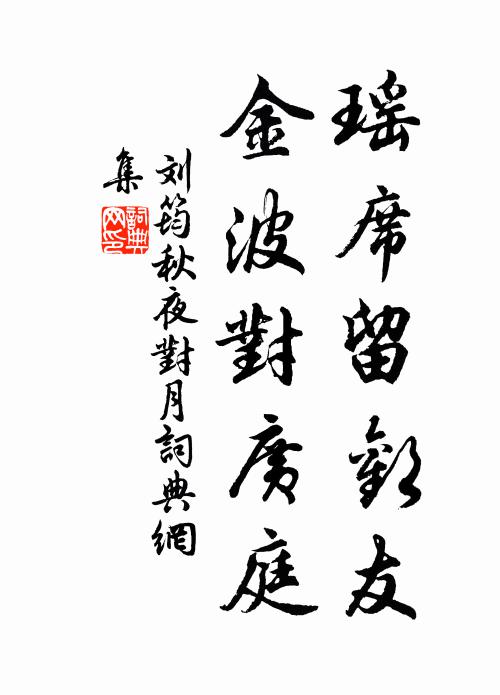 瑶席留歡友
金波對廣庭
刘筠秋夜對月詞典網
集
詞典
网印